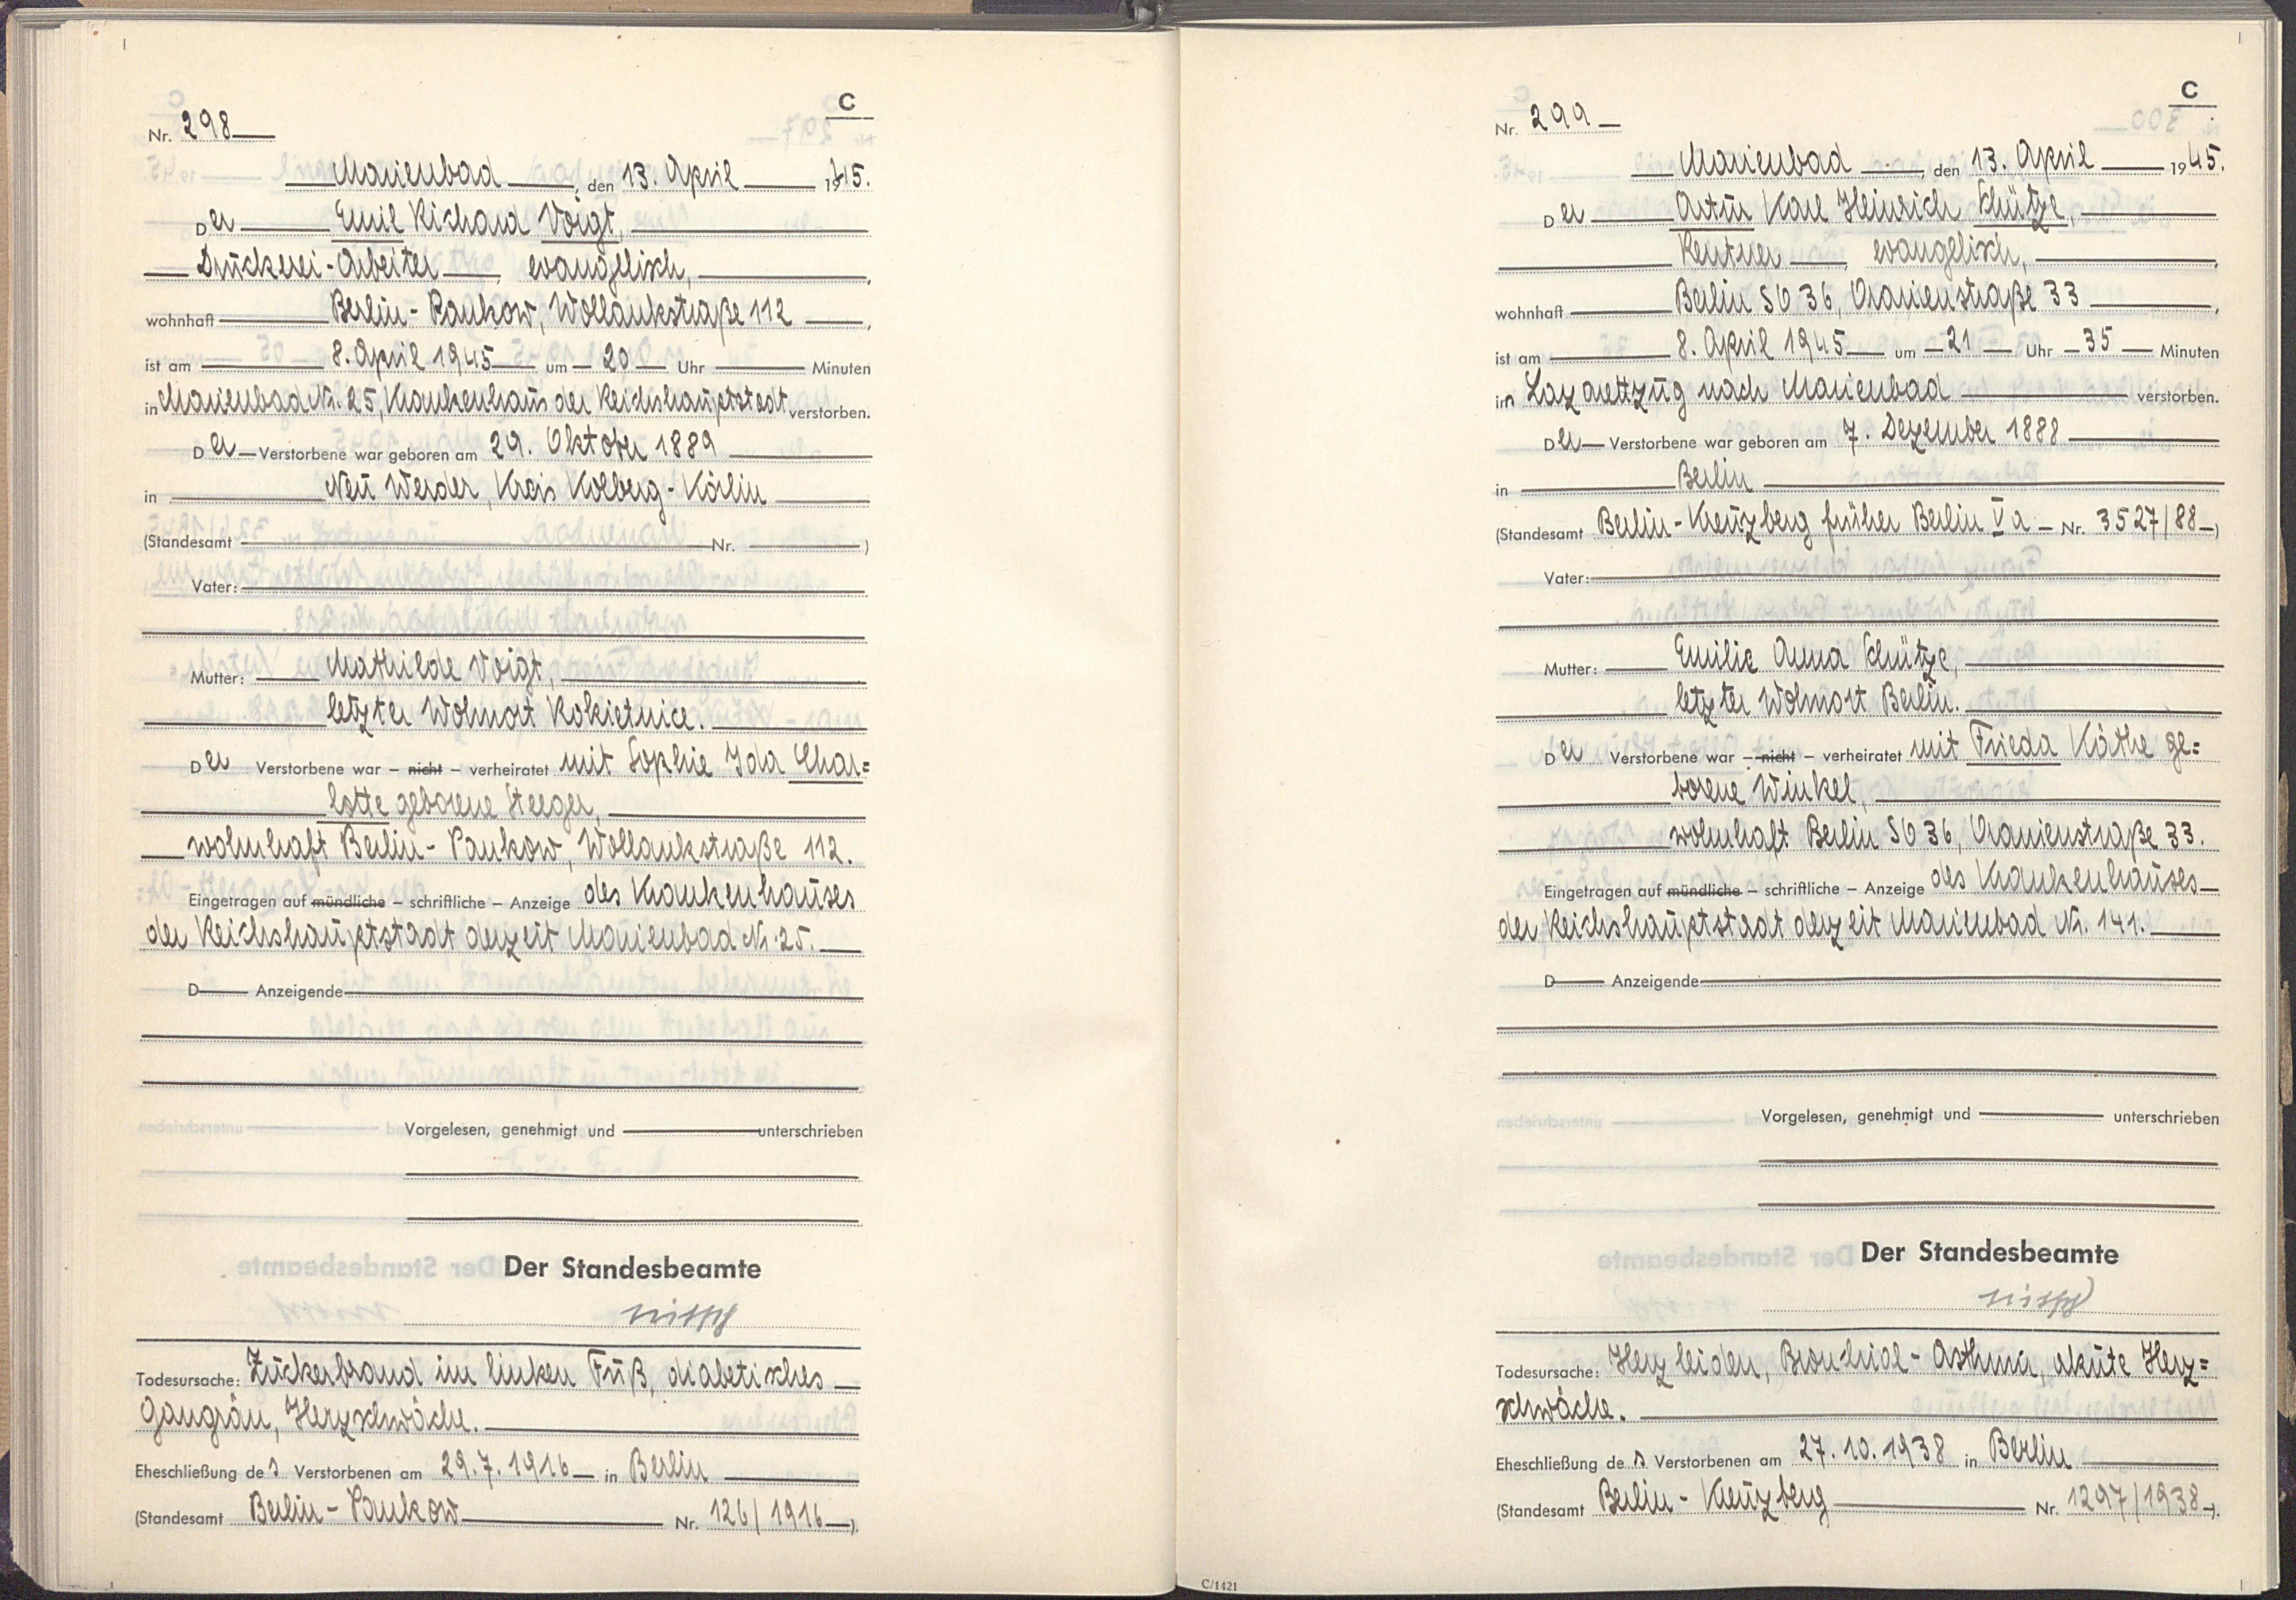 C
Nr. 298
Marienbad, den 13. April 1945.
Der Emil Richard Voigt,
Druckerei-Arbeiter, evangelisch,
wohnhaft Berlin-Pankow, Wollankstraße 112,
ist am 8. April 1945 um 20 Uhr Minuten
in Marienbad Nr. 25, Krankenhaus der Reichshauptstadt verstorben.
Der Verstorbene war geboren am 29. Oktober 1889
in Neu Werder, Kreis Kolberg-Körlin
(Standesamt Nr. )
Vater:
Mutter: Mathilde Voigt,
letzter Wohnort Kokietnice.
Der Verstorbene war – nicht – verheiratet mit Sophie Ida Char=
lotte geborene Steeger,
wohnhaft Berlin-Pankow, Wollankstraße 112.
Eingetragen auf mündliche – schriftliche – Anzeige des Krankenhauses
der Reichshauptstadt derzeit Marienbad Nr. 25.
D Anzeigende
Vorgelesen, genehmigt und unterschrieben
Der Standesbeamte
Todesursache: Zuckerbrand im linken Fuß, diabetisches
Gangrän, Herzschwäche.
Eheschließung des Verstorbenen am 29.7.1916 in Berlin
(Standesamt Berlin-Pankow Nr. 126/1916).
C
Nr. 299
Marienbad, den 13. April 1945.
Der Artur Karl Heinrich Schütze,
Rentner, evangelisch,
wohnhaft Berlin SO 36, Oranienstraße 33,
ist am 8. April 1945 um 21 Uhr 35 Minuten
im Lazarettzug nach Marienbad verstorben.
Der Verstorbene war geboren am 7. Dezember 1888
in Berlin
(Standesamt Berlin-Kreuzberg früher Berlin Va Nr. 3527/88)
Vater:
Mutter: Emilie Anna Schütze,
letzter Wohnort Berlin.
Der Verstorbene war – nicht – verheiratet mit Frieda Käthe ge=
borene Winkel,
wohnhaft Berlin SO 36, Oranienstraße 33.
Eingetragen auf mündliche – schriftliche – Anzeige des Krankenhauses
der Reichshauptstadt derzeit Marienbad Nr. 141.
D Anzeigende
Vorgelesen, genehmigt und unterschrieben
Der Standesbeamte
Todesursache: Herzleiden, Bronchial-Asthma, akute Herz=
schwäche.
Eheschließung des Verstorbenen am 27.10.1938 in Berlin
(Standesamt Berlin-Kreuzberg Nr. 1297/1938).
C/1421